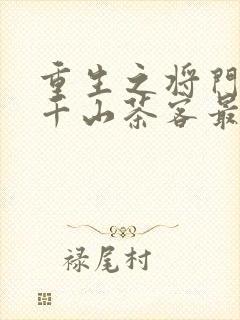 重生之将门
千山茶客最
禄尾村